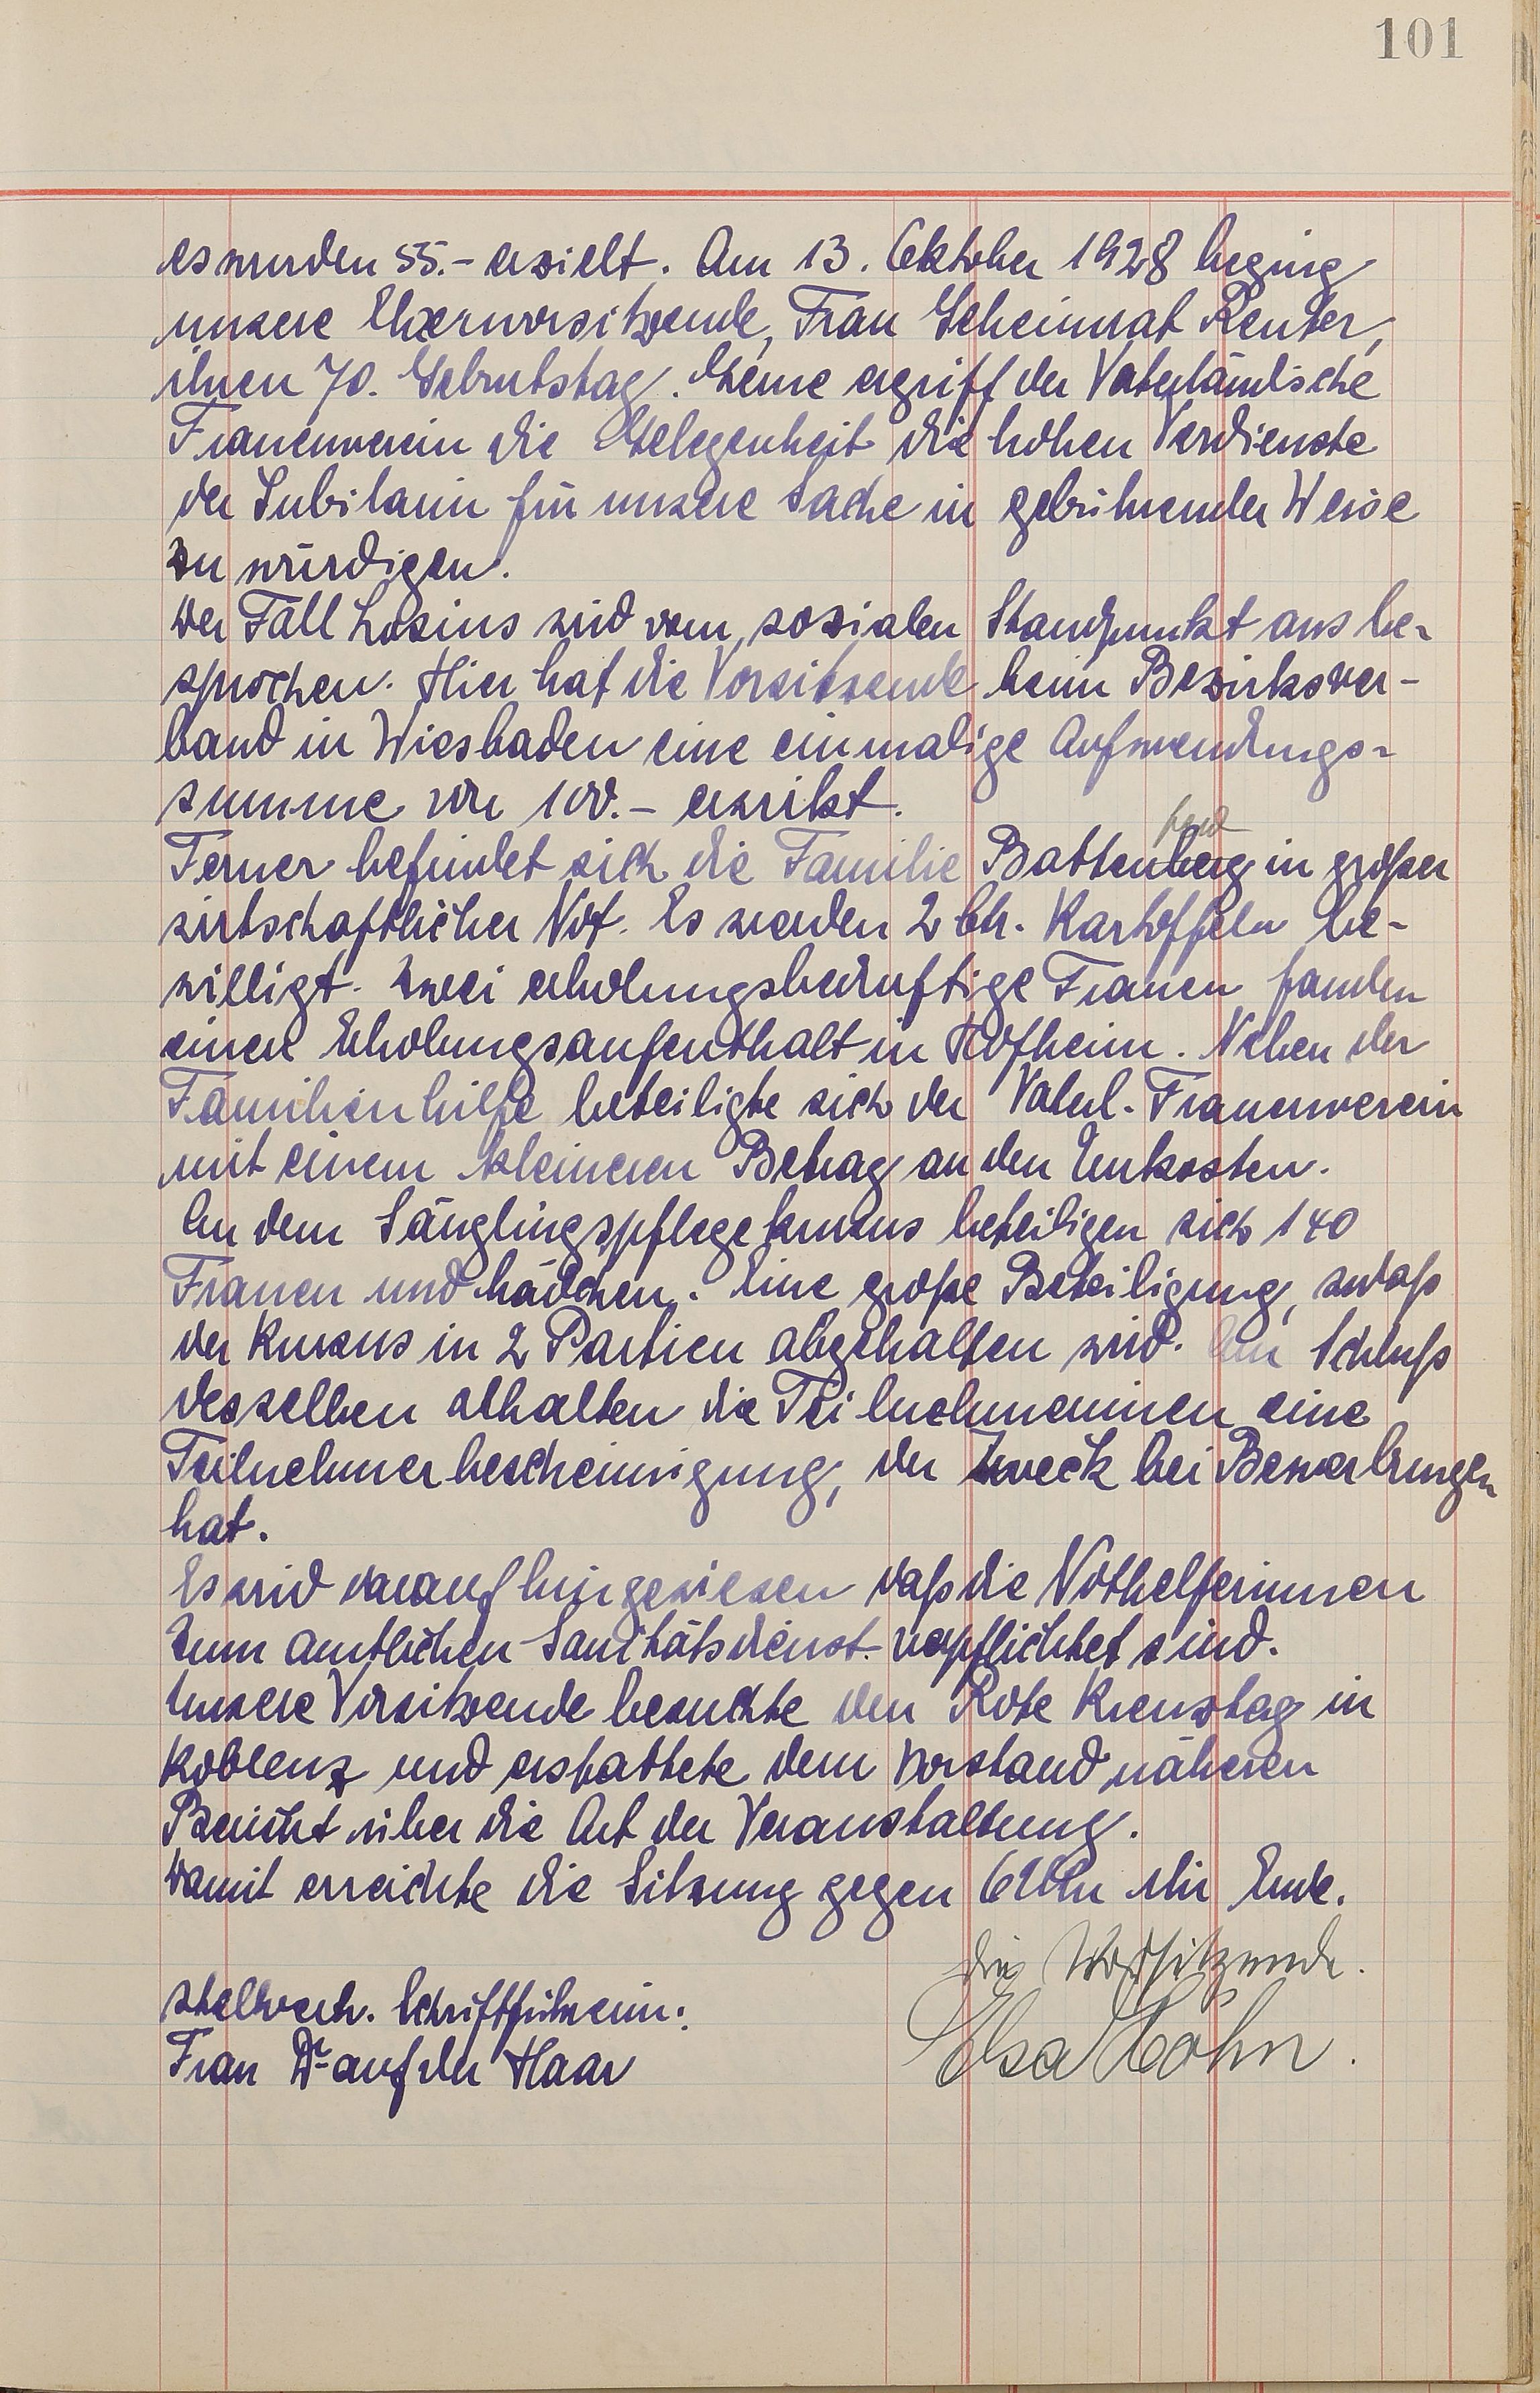 101
es wurden 55.- erzielt. Am 13. Oktober 1928 beging
unsere Ehrenvorsitzende, Frau Geheimrat Reuter,
ihren 70. Geburtstag. Gerne ergriff der Vaterländische
Frauenverein die Gelegenheit die hohen Verdienste
der Jubilarin für unsere Sache in gebührender Weise
zu würdigen.
Der Fall wird vom sozialen Standpunkt aus be-
sprochen. Hier hat die Vorsitzende beim Bezirksver-
band in Wiesbaden eine einmalige Aufwendungs-
summe von 100.- erwirkt.
feld
Ferner befindet sich die Familie Battenberg in großer
wirtschaftlicher Not. Es werden 2 Ctr. Kartoffeln be-
willigt. Zwei erholungsbedürftige Frauen fanden
einen Erholungsaufenthalt in Hofheim. Neben der
Familienhilfe beteiligte sich der Vaterl. Frauenverein
mit einem kleineren Betrag an den Unkosten.
An dem Säuglingspflegekursus beteiligen sich 140
Frauen und Mädchen. Eine große Beteiligung, sodaß
der Kursus in 2 Partien abgehalten wird. Am Schluß
desselben erhalten die Teilnehmerinnen eine
Teilnehmerbescheinigung, der Zweck bei Bewerbungen
hat.
Es wird darauf hingewiesen daß die Nothelferinnen
zum amtlichen Sanitätsdienst verpflichtet sind.
Unsere Vorsitzende besuchte den Rote Kreuztag in
Koblenz und erstattete dem Vorstand näheren
Bericht über die Art der Veranstaltung.
Damit erreichte die Sitzung gegen 6 Uhr ihr Ende.
die Vorsitzende.
stellvertr. Schriftführerin:
Elsa Höhn.
Frau Dr. auf der Haar